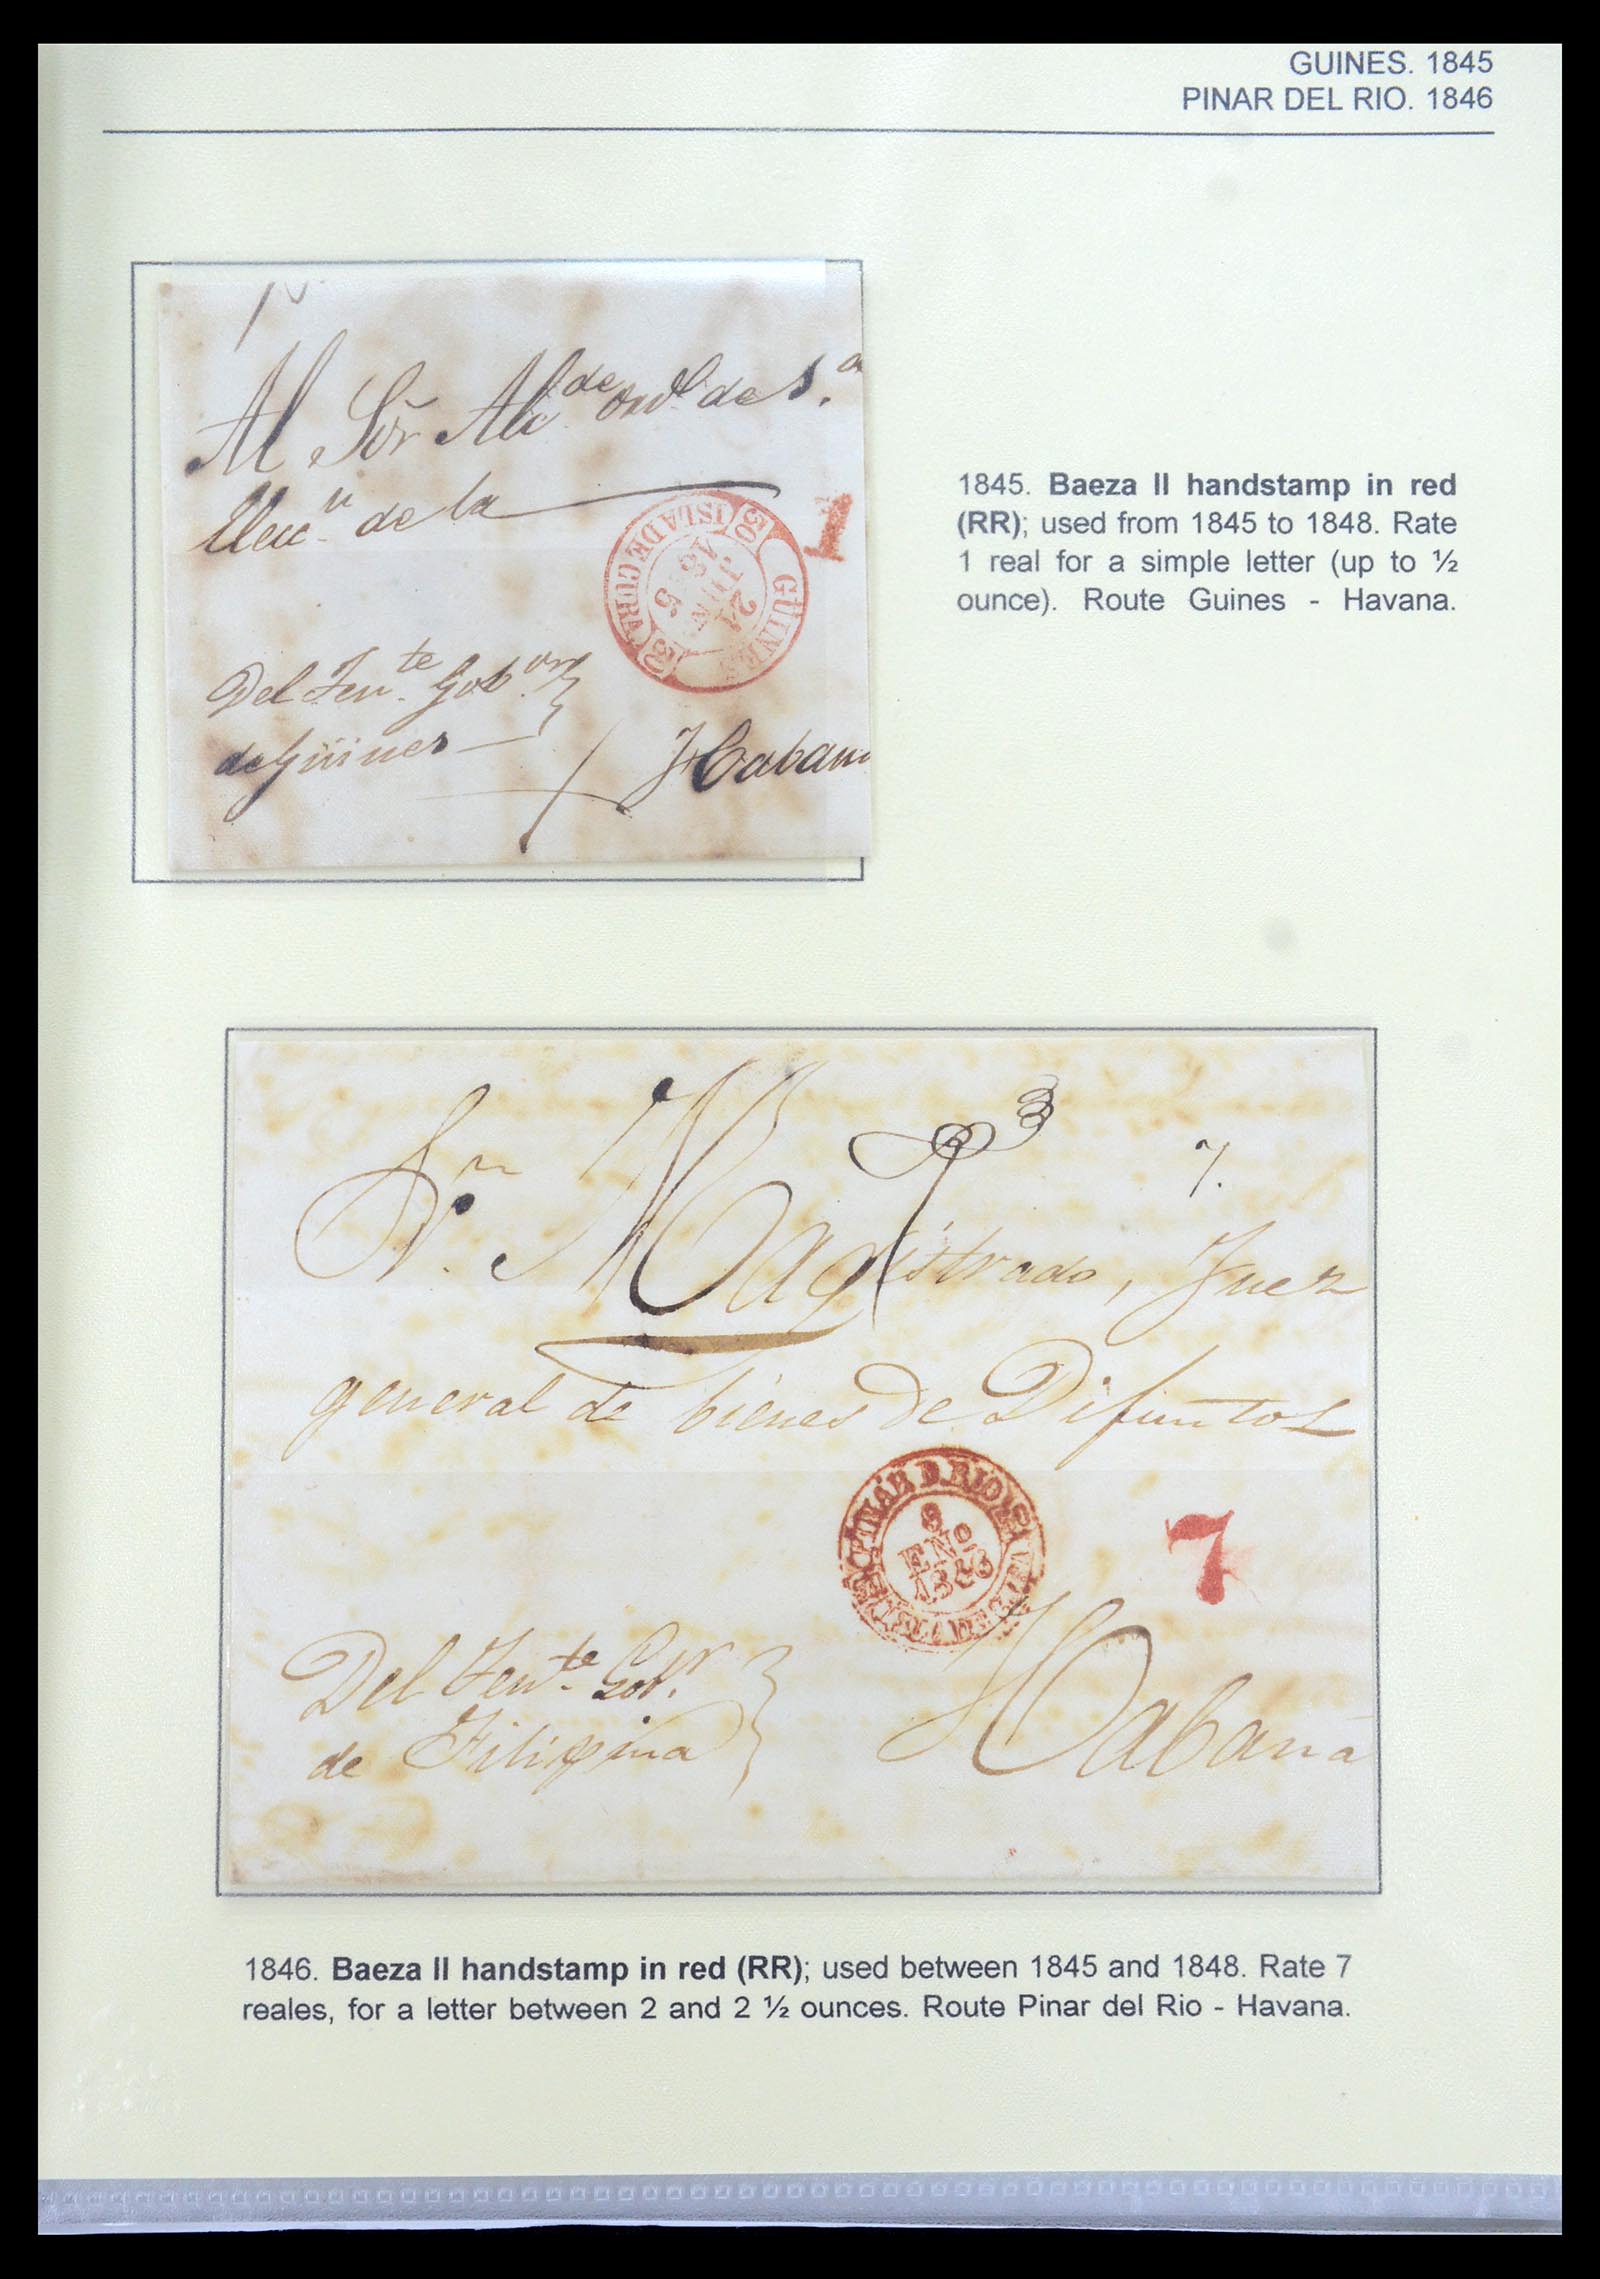 GUINES. 1845
PINAR DEL RIO. 1846
Al Sor Alcde
de la
GUINES
ISLA DE CUBA
21
JUN
1845
1
Del Tente Gobor
de Güines
Habana
1845. Baeza II handstamp in red
(RR); used from 1845 to 1848. Rate
1 real for a simple letter (up to ½
ounce). Route Guines - Havana.
7.
Sr. Magistrado, Juez
general de bienes de Difuntos
PINAR D. RIO
8
ENO
1846
7
Del Tente Gobr.
de Filipina
Habana
1846. Baeza II handstamp in red (RR); used between 1845 and 1848. Rate 7
reales, for a letter between 2 and 2 ½ ounces. Route Pinar del Rio - Havana.